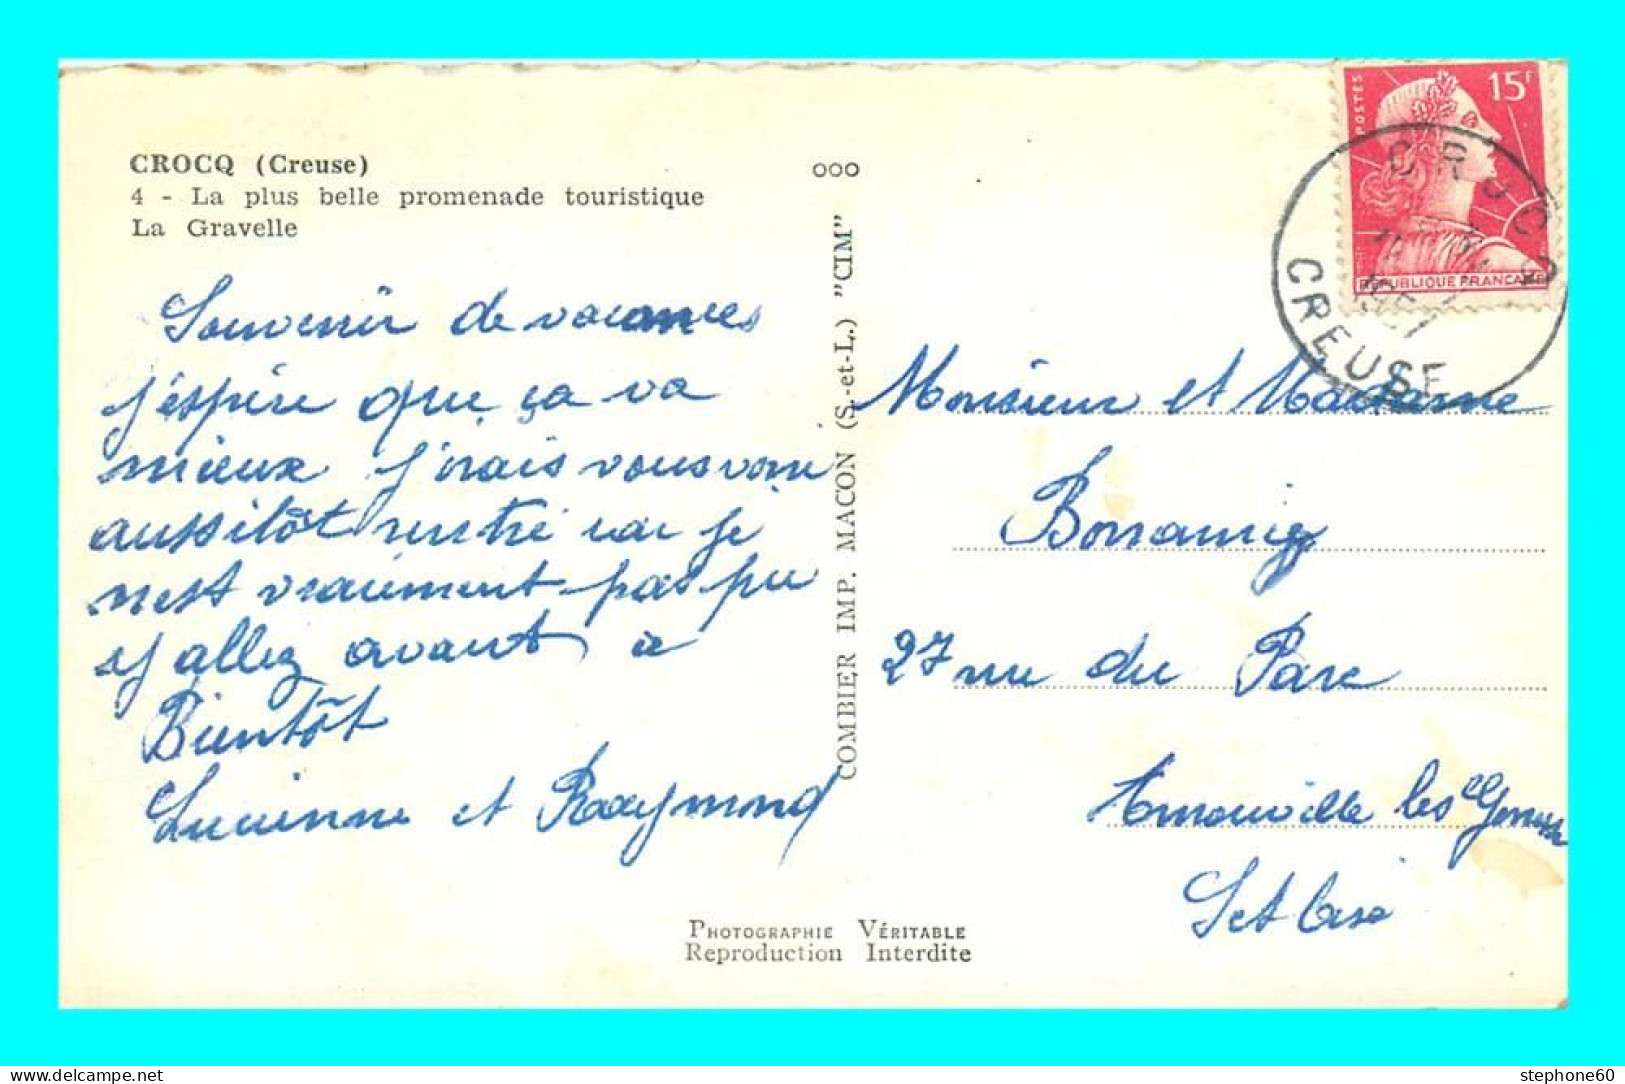 CROCQ (Creuse)
4 - La plus belle promenade touristique
La Gravelle
Souvenir de vacances
j'éspère que ça va
mieux j'irais vous voir
aussitôt rentré car je
n'est vraiement pas pu
y allez avant à
Bientôt
Lucienne et Raymond
ooo
COMBIER IMP. MACON (S.-et-L.) "CIM"
POSTES
15F
REPUBLIQUE FRANCAISE
CROCQ
CREUSE
Monsieur et Madame
27 rue du Parc
Arnouville les Gonesse
Set Oise
PHOTOGRAPHIE VÉRITABLE
Reproduction Interdite
stephone60